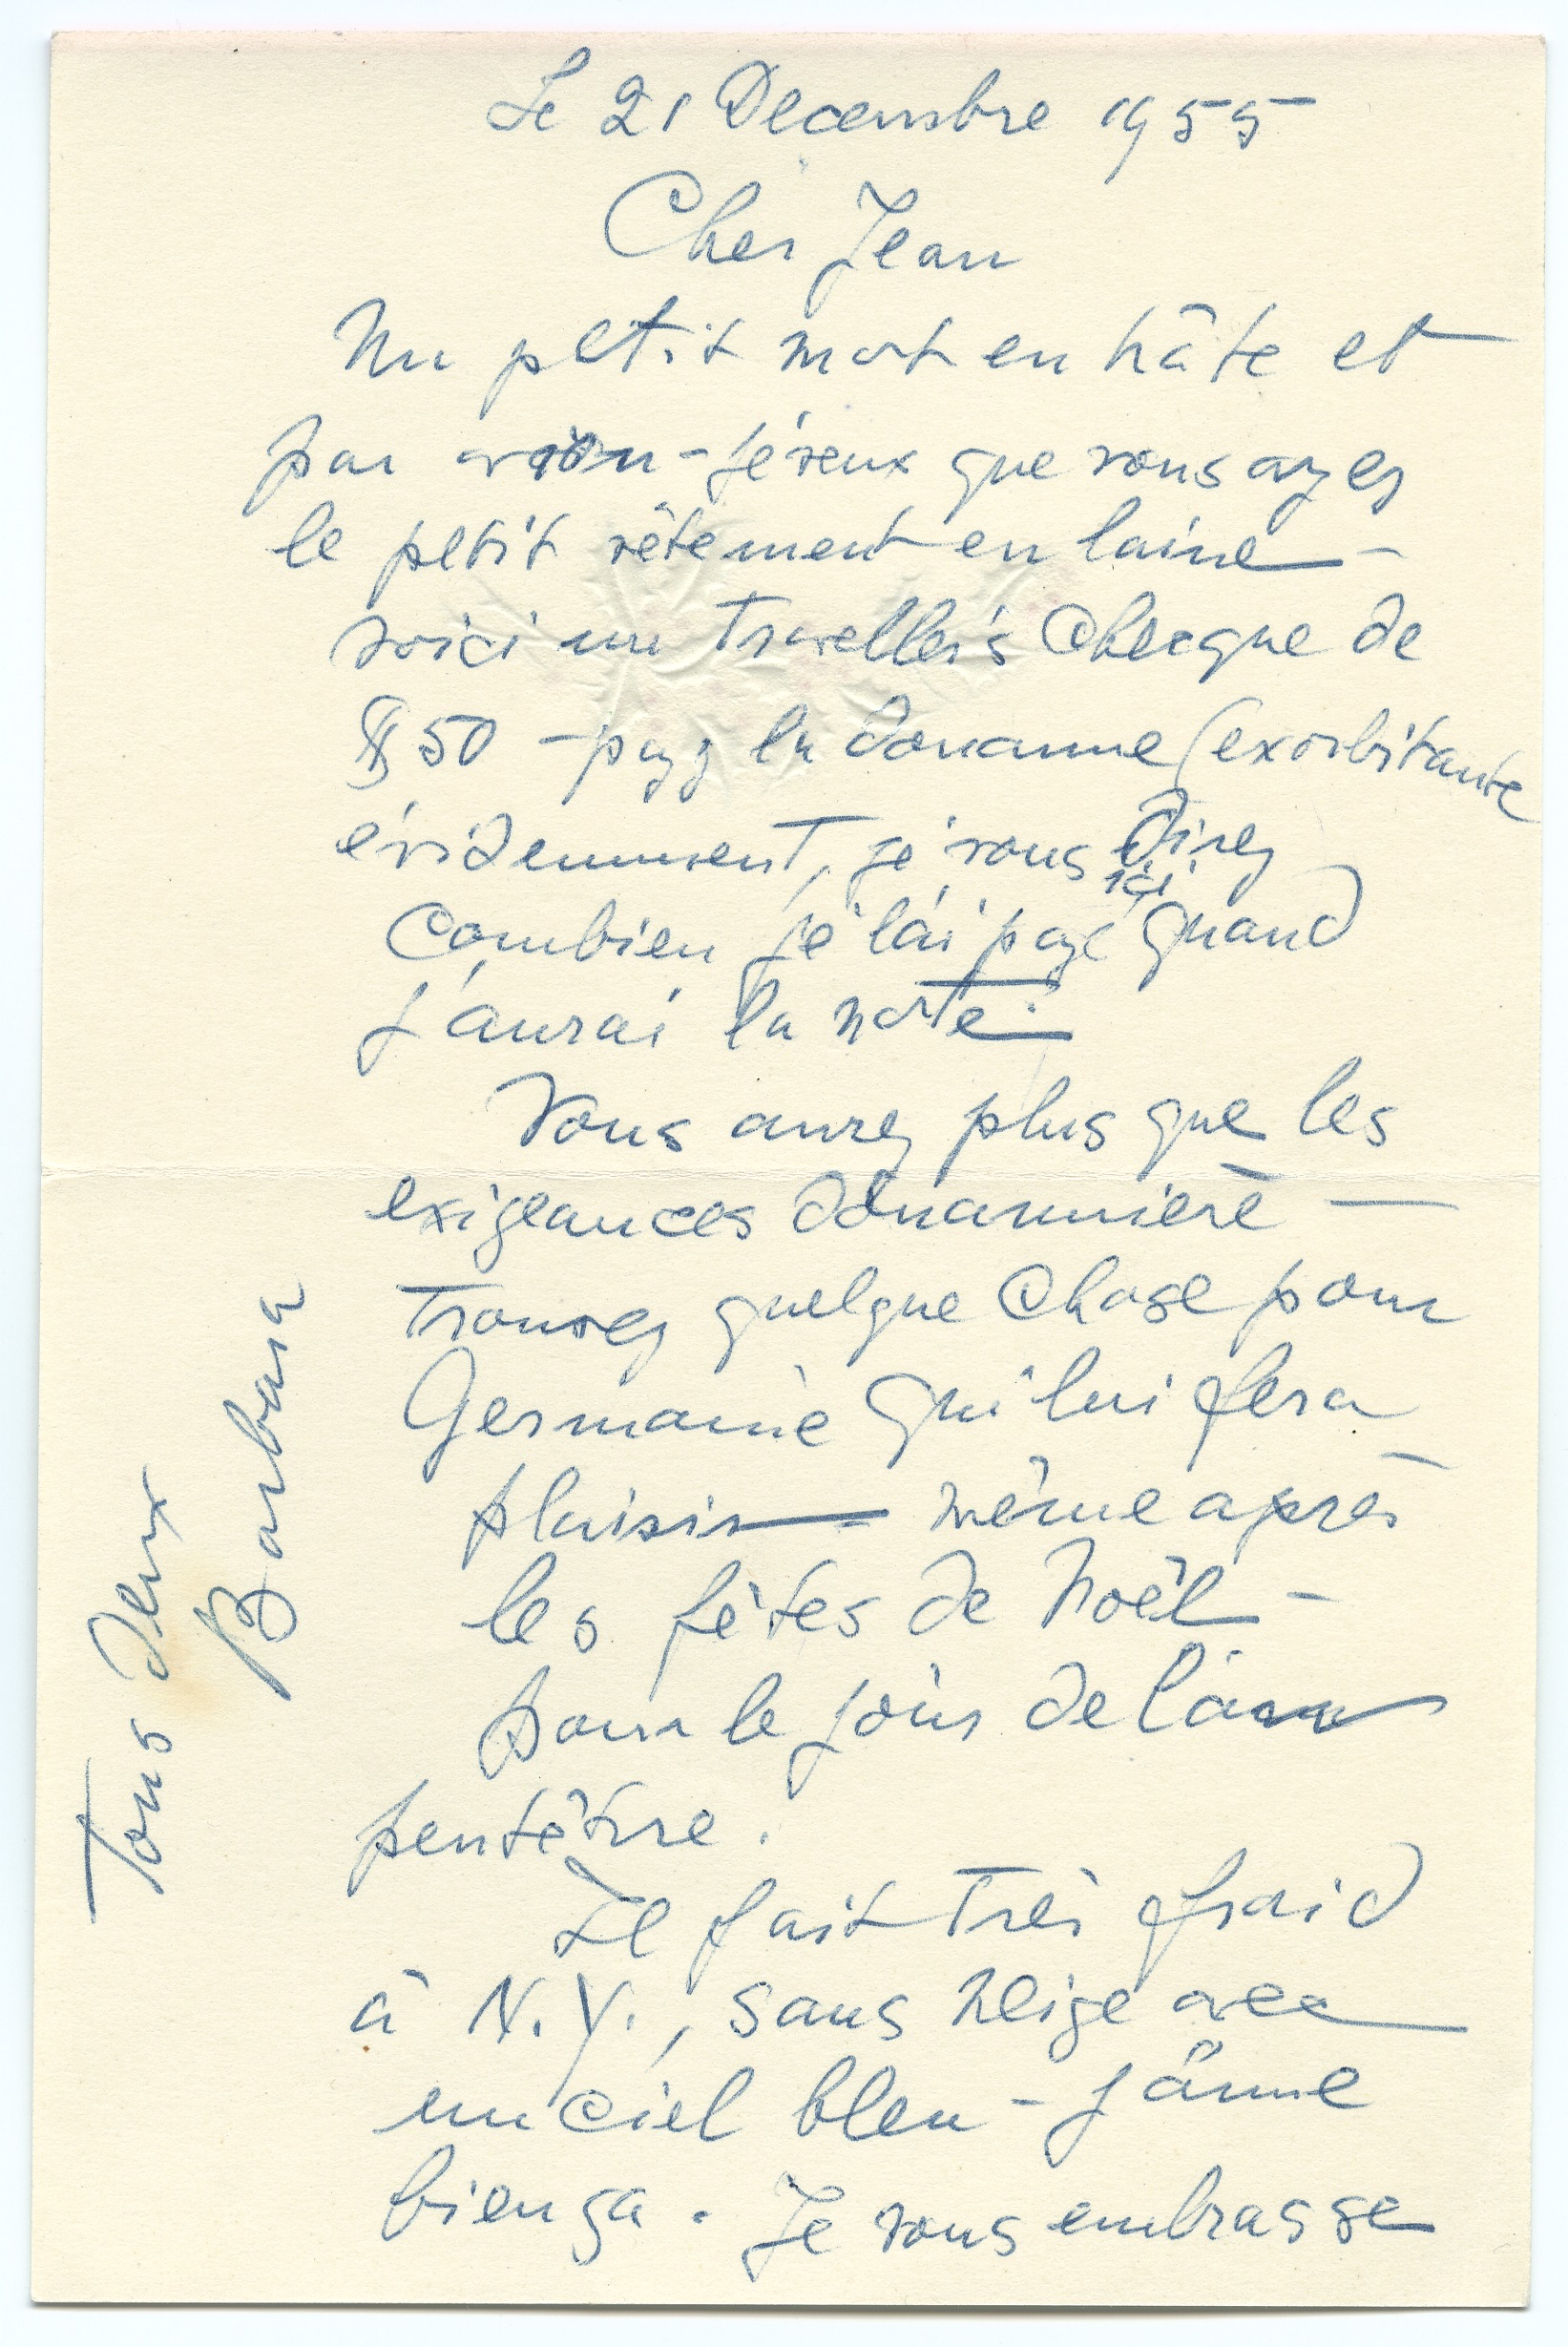 Le 21 Decembre 1955
Cher Jean
Un petit mot en hâte et
par avion - je veux que vous ayez
le petit vêtement en laine -
voici un Traveller's Checque de
$50 - payez la douanne (exorbitante
évidemment, je vous direz
combien je l'ai payé ici quand
j'aurai la note.
Vous aurez plus que les
exigeances douannière -
Trouvez quelque chose pour
Germaine qui lui fera
plaisir - même après
les fêtes de Noël -
pour le jour de l'an
peutêtre.
Il fait très froid
à N.Y., sans neige avec
un ciel bleu - j'aime
bien ça. Je vous embrasse
Tous deux
Barbara